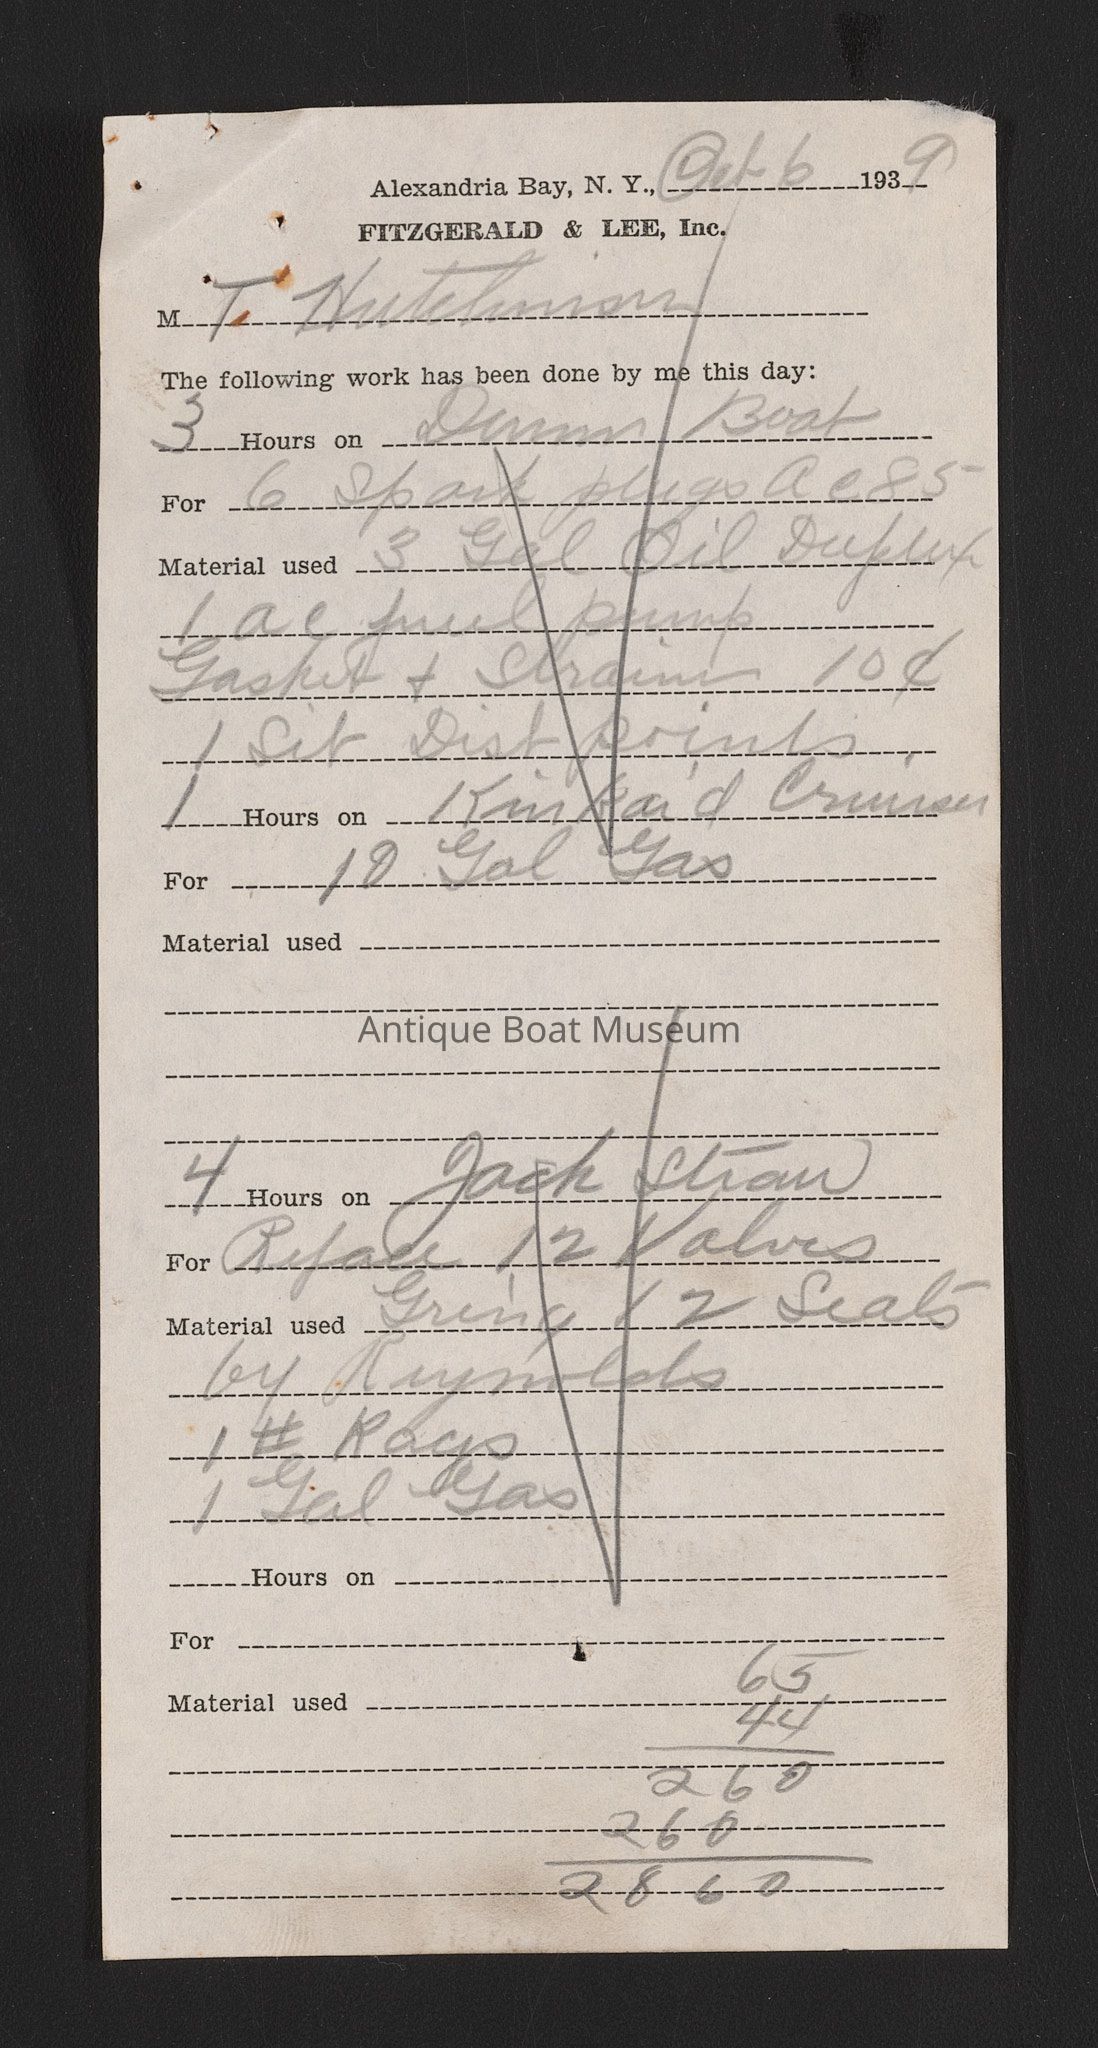 Alexandria Bay, N. Y., Oct 6 1939
FITZGERALD & LEE, Inc.
M T. Hutchinson
The following work has been done by me this day:
3 Hours on Boat
For 6 Spark plugs A C 85
Material used 3 Gal Oil Duplex
1 A C fuel pump
Gasket + Strainer 10¢
1 Sit Dist points
1 Hours on Kinkaid Cruiser
For 10 Gal Gas
Material used
Antique Boat Museum
4 Hours on Jack Straw
For Reface 12 Valves
Material used Gring 12 Seats
by Reynolds
1 # Rags
1 Gal Gas
Hours on
For
Material used
65
44
260
260
2860